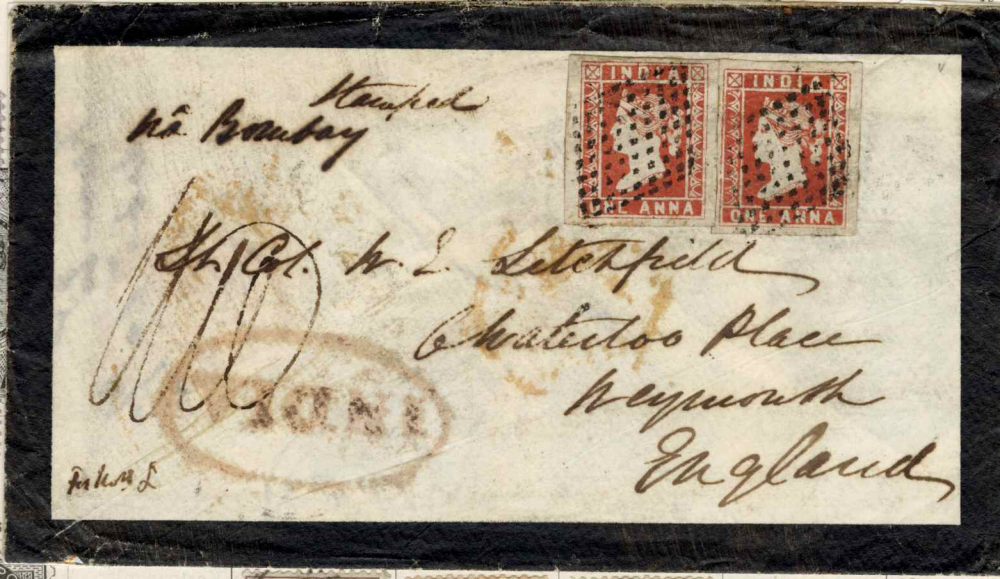 Stamped
viâ Bombay
INDIA INDIA
ONE ANNA ONE ANNA
Lt. Col. W. E. Litchfield
6 Waterloo Place
Weymouth
England
INDIA